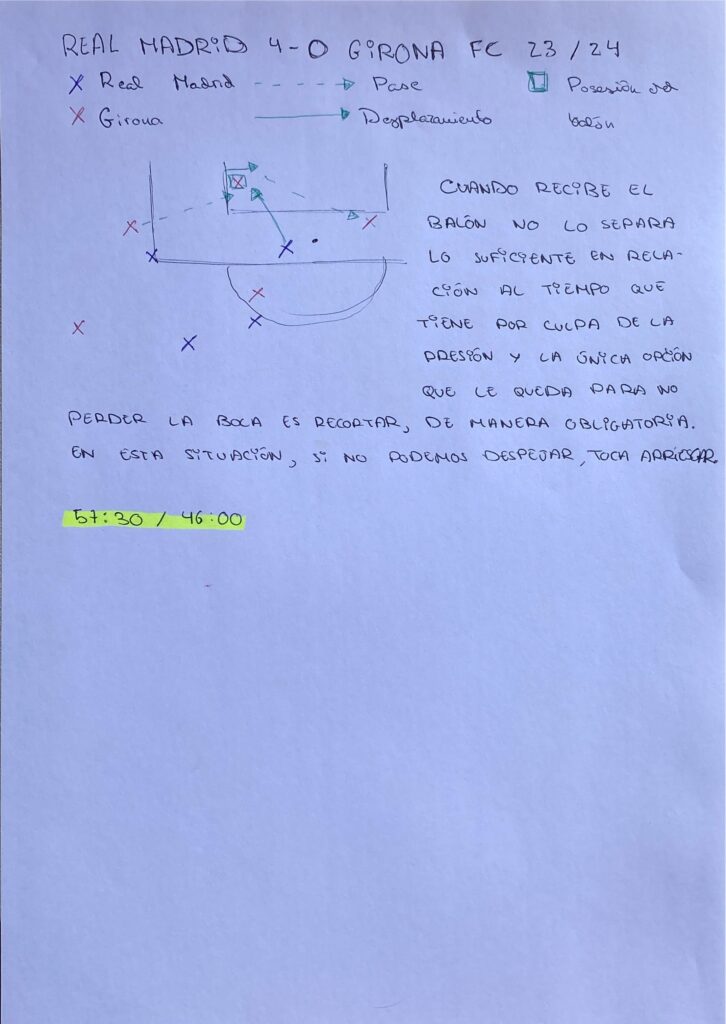 REAL MADRID 4-0 GIRONA FC 23/24
X Real Madrid - - - → Pase Posesión del
X Girona → Desplazamiento balón
CUANDO RECIBE EL
BALÓN NO LO SEPARA
LO SUFICIENTE EN RELA-
CIÓN AL TIEMPO QUE
TIENE POR CULPA DE LA
PRESIÓN Y LA ÚNICA OPCIÓN
QUE LE QUEDA PARA NO
PERDER LA BOLA ES RECORTAR, DE MANERA OBLIGATORIA.
EN ESTA SITUACIÓN, SI NO PODEMOS DESPEJAR, TOCA ARRIESGAR.
57:30 / 46:00